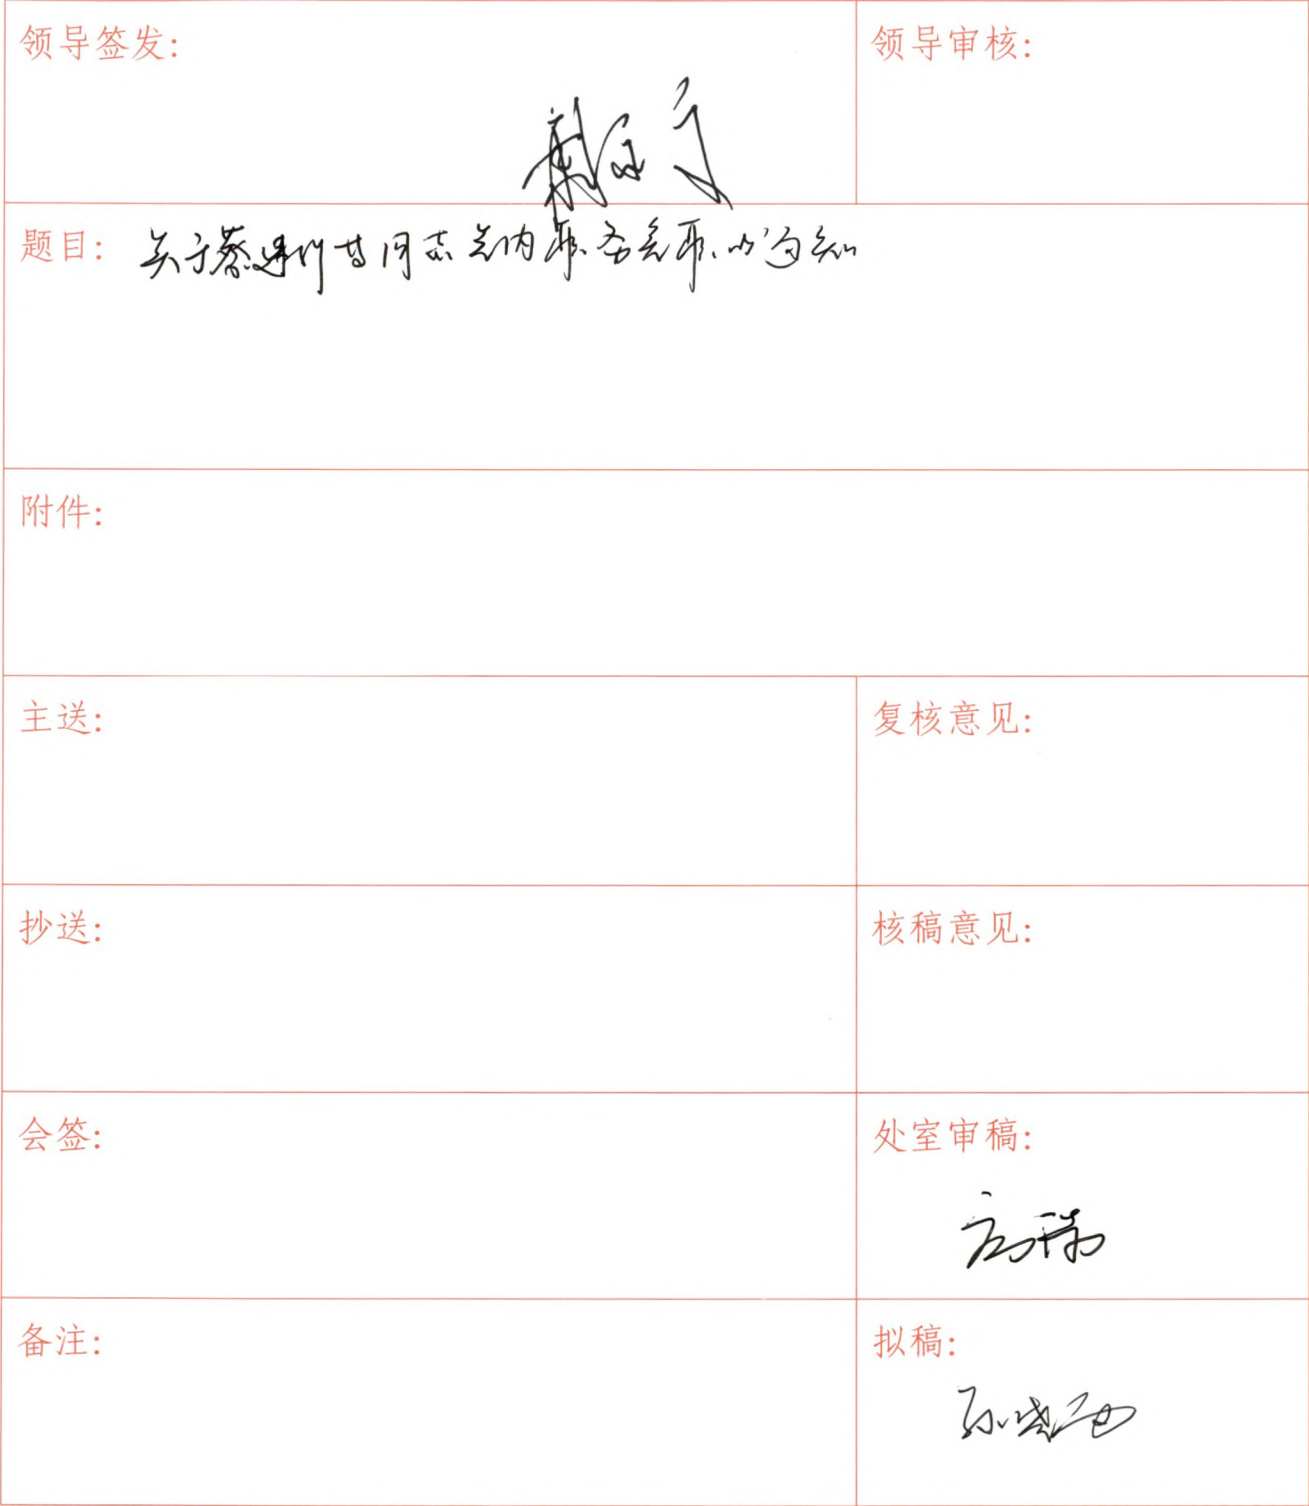 领导签发:
领导审核:
题目: 关于蔡建等同志党内职务免职的通知
附件:
主送:
复核意见:
抄送:
核稿意见:
会签:
处室审稿:
高瑞
备注:
拟稿:
孙晓